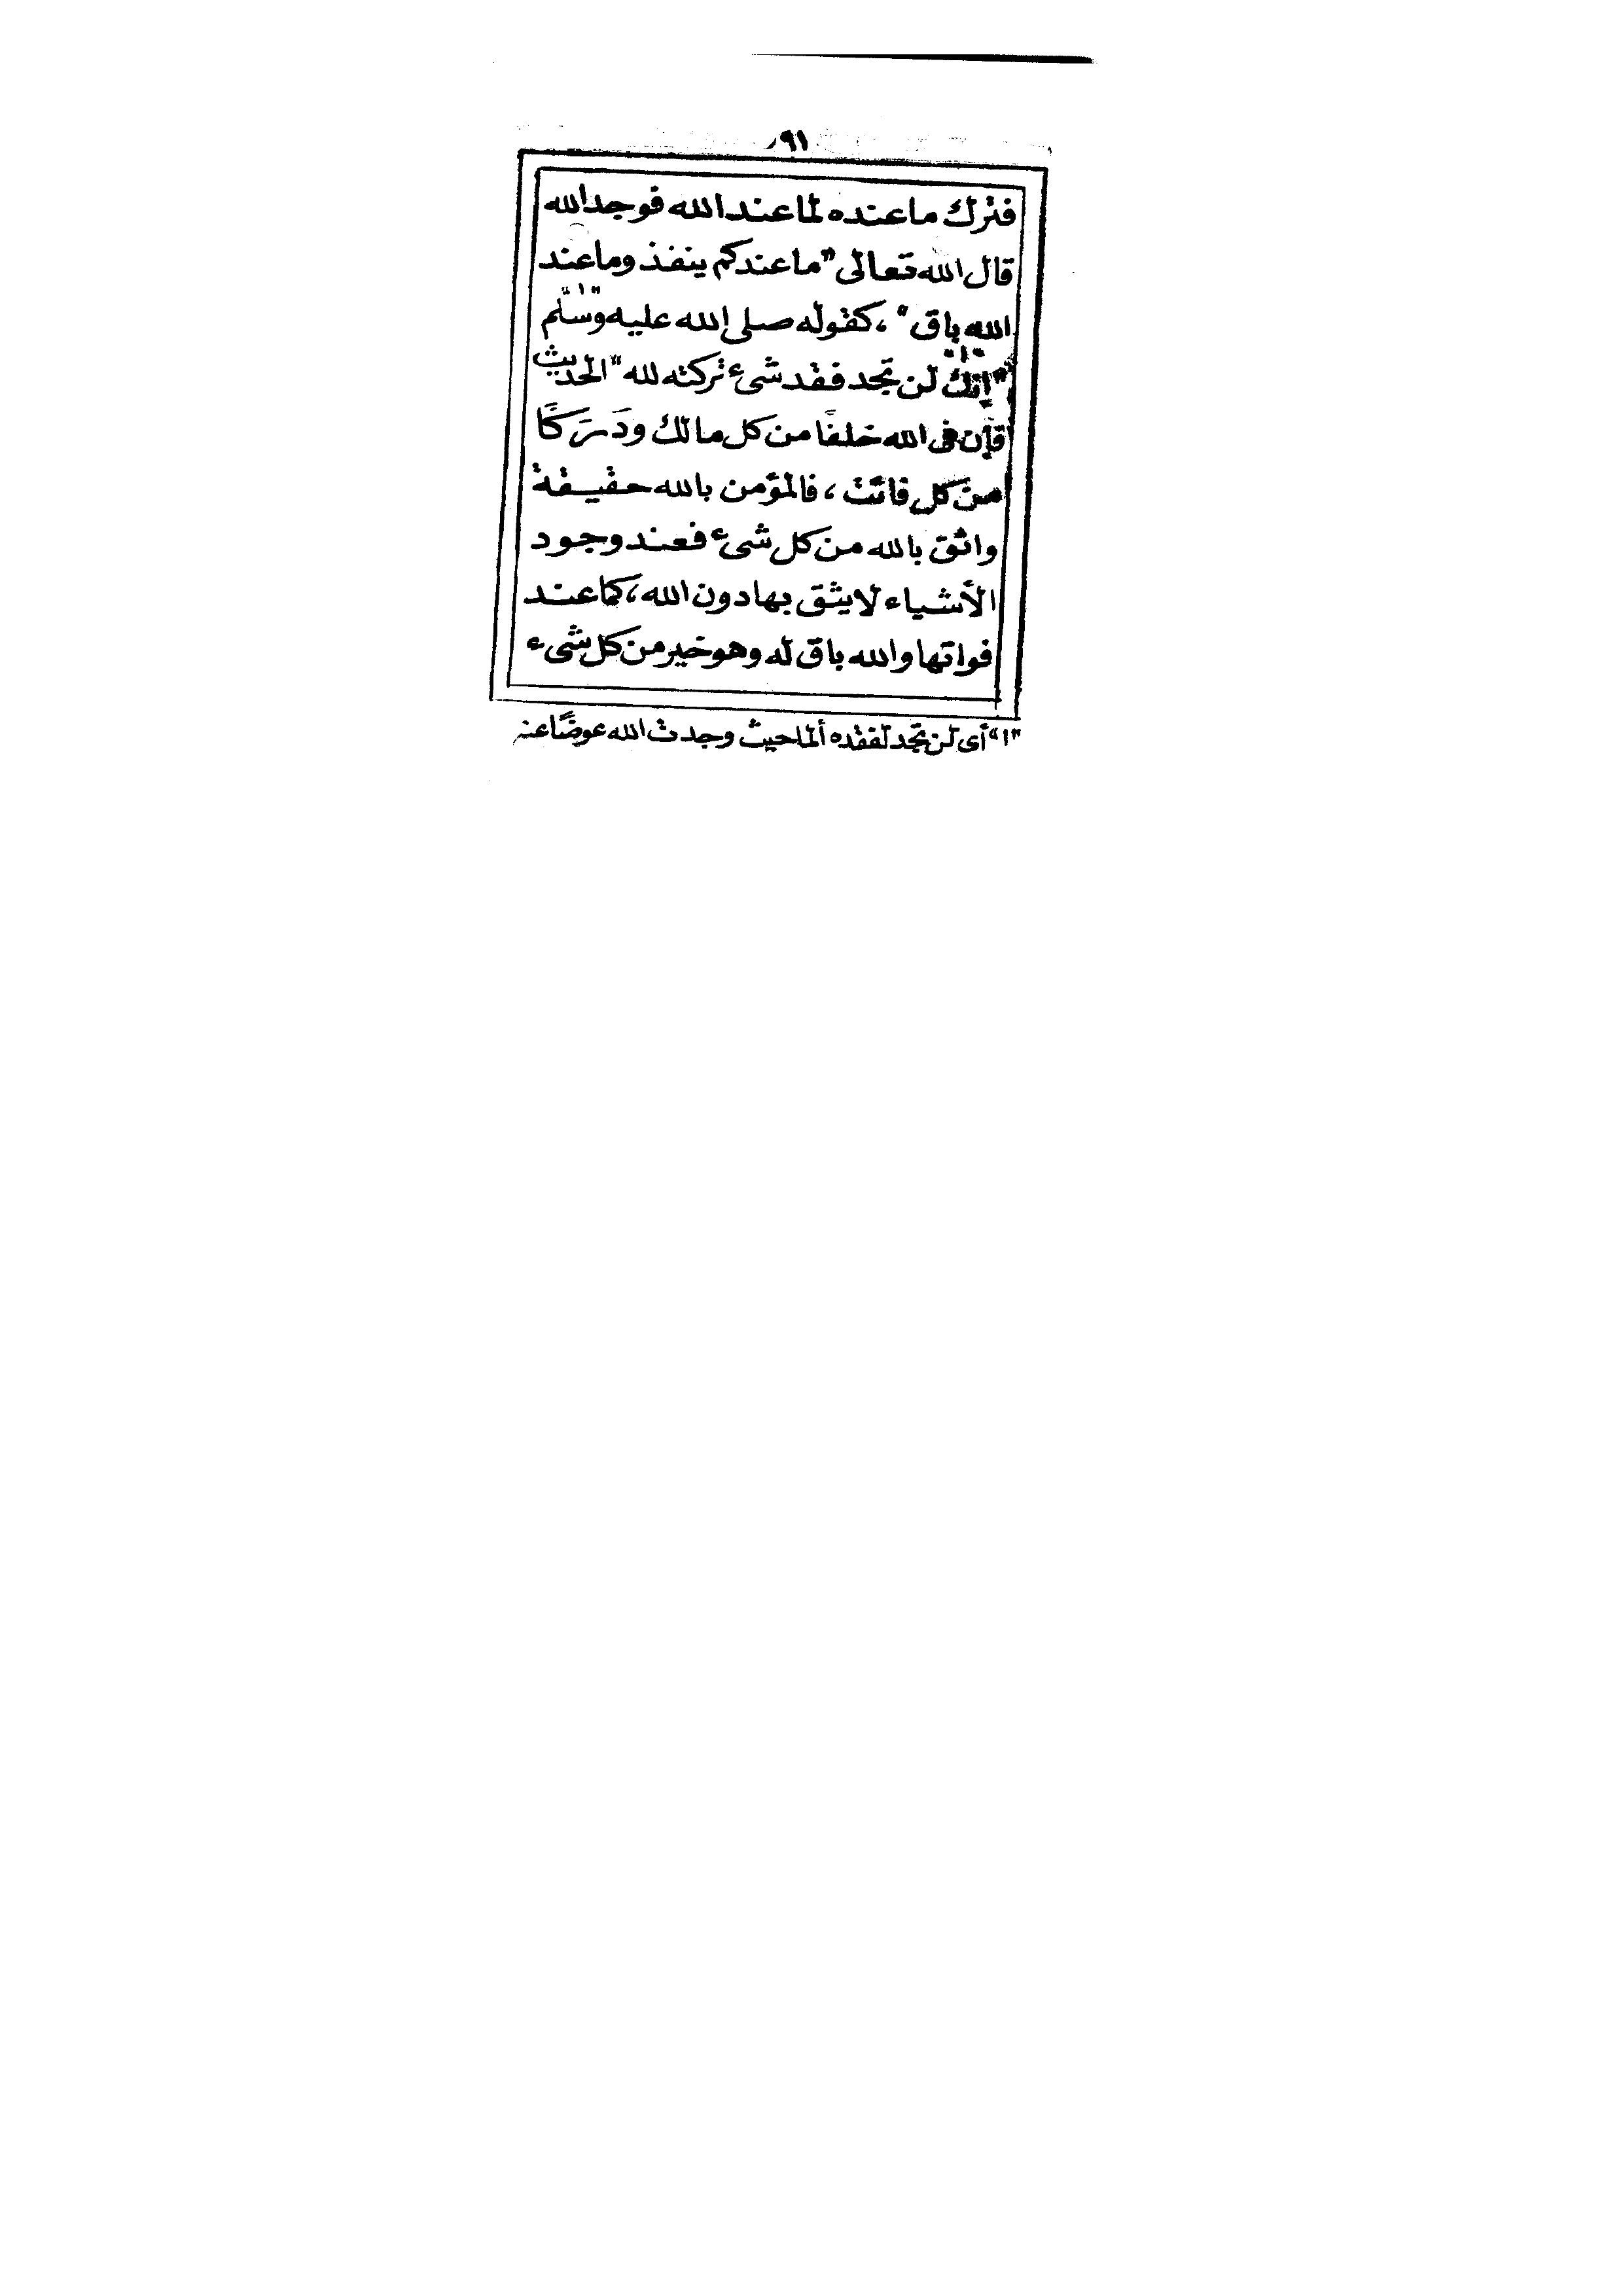 ٩١
فترك ما عنده لما عند الله فوجد الله
قال الله تعالى "ما عندكم ينفذ وما عند
الله باق"، كقوله صلى الله عليه وسلّم "١"
"إنك لن تجد فقد شئ تركته لله" الحديث "١"
فإن في الله خلفًا من كل مالك ودَرَكًا
من كل فائت، فالمؤمن بالله حقيقة
واثق بالله من كل شىء فعند وجود
الأشياء لا يثق بها دون الله، كما عند
فواتها والله باق له وهو خير من كل شىء
"١" أى لن تجد لفقده ألما حيث وجدت الله عوضًا عنه